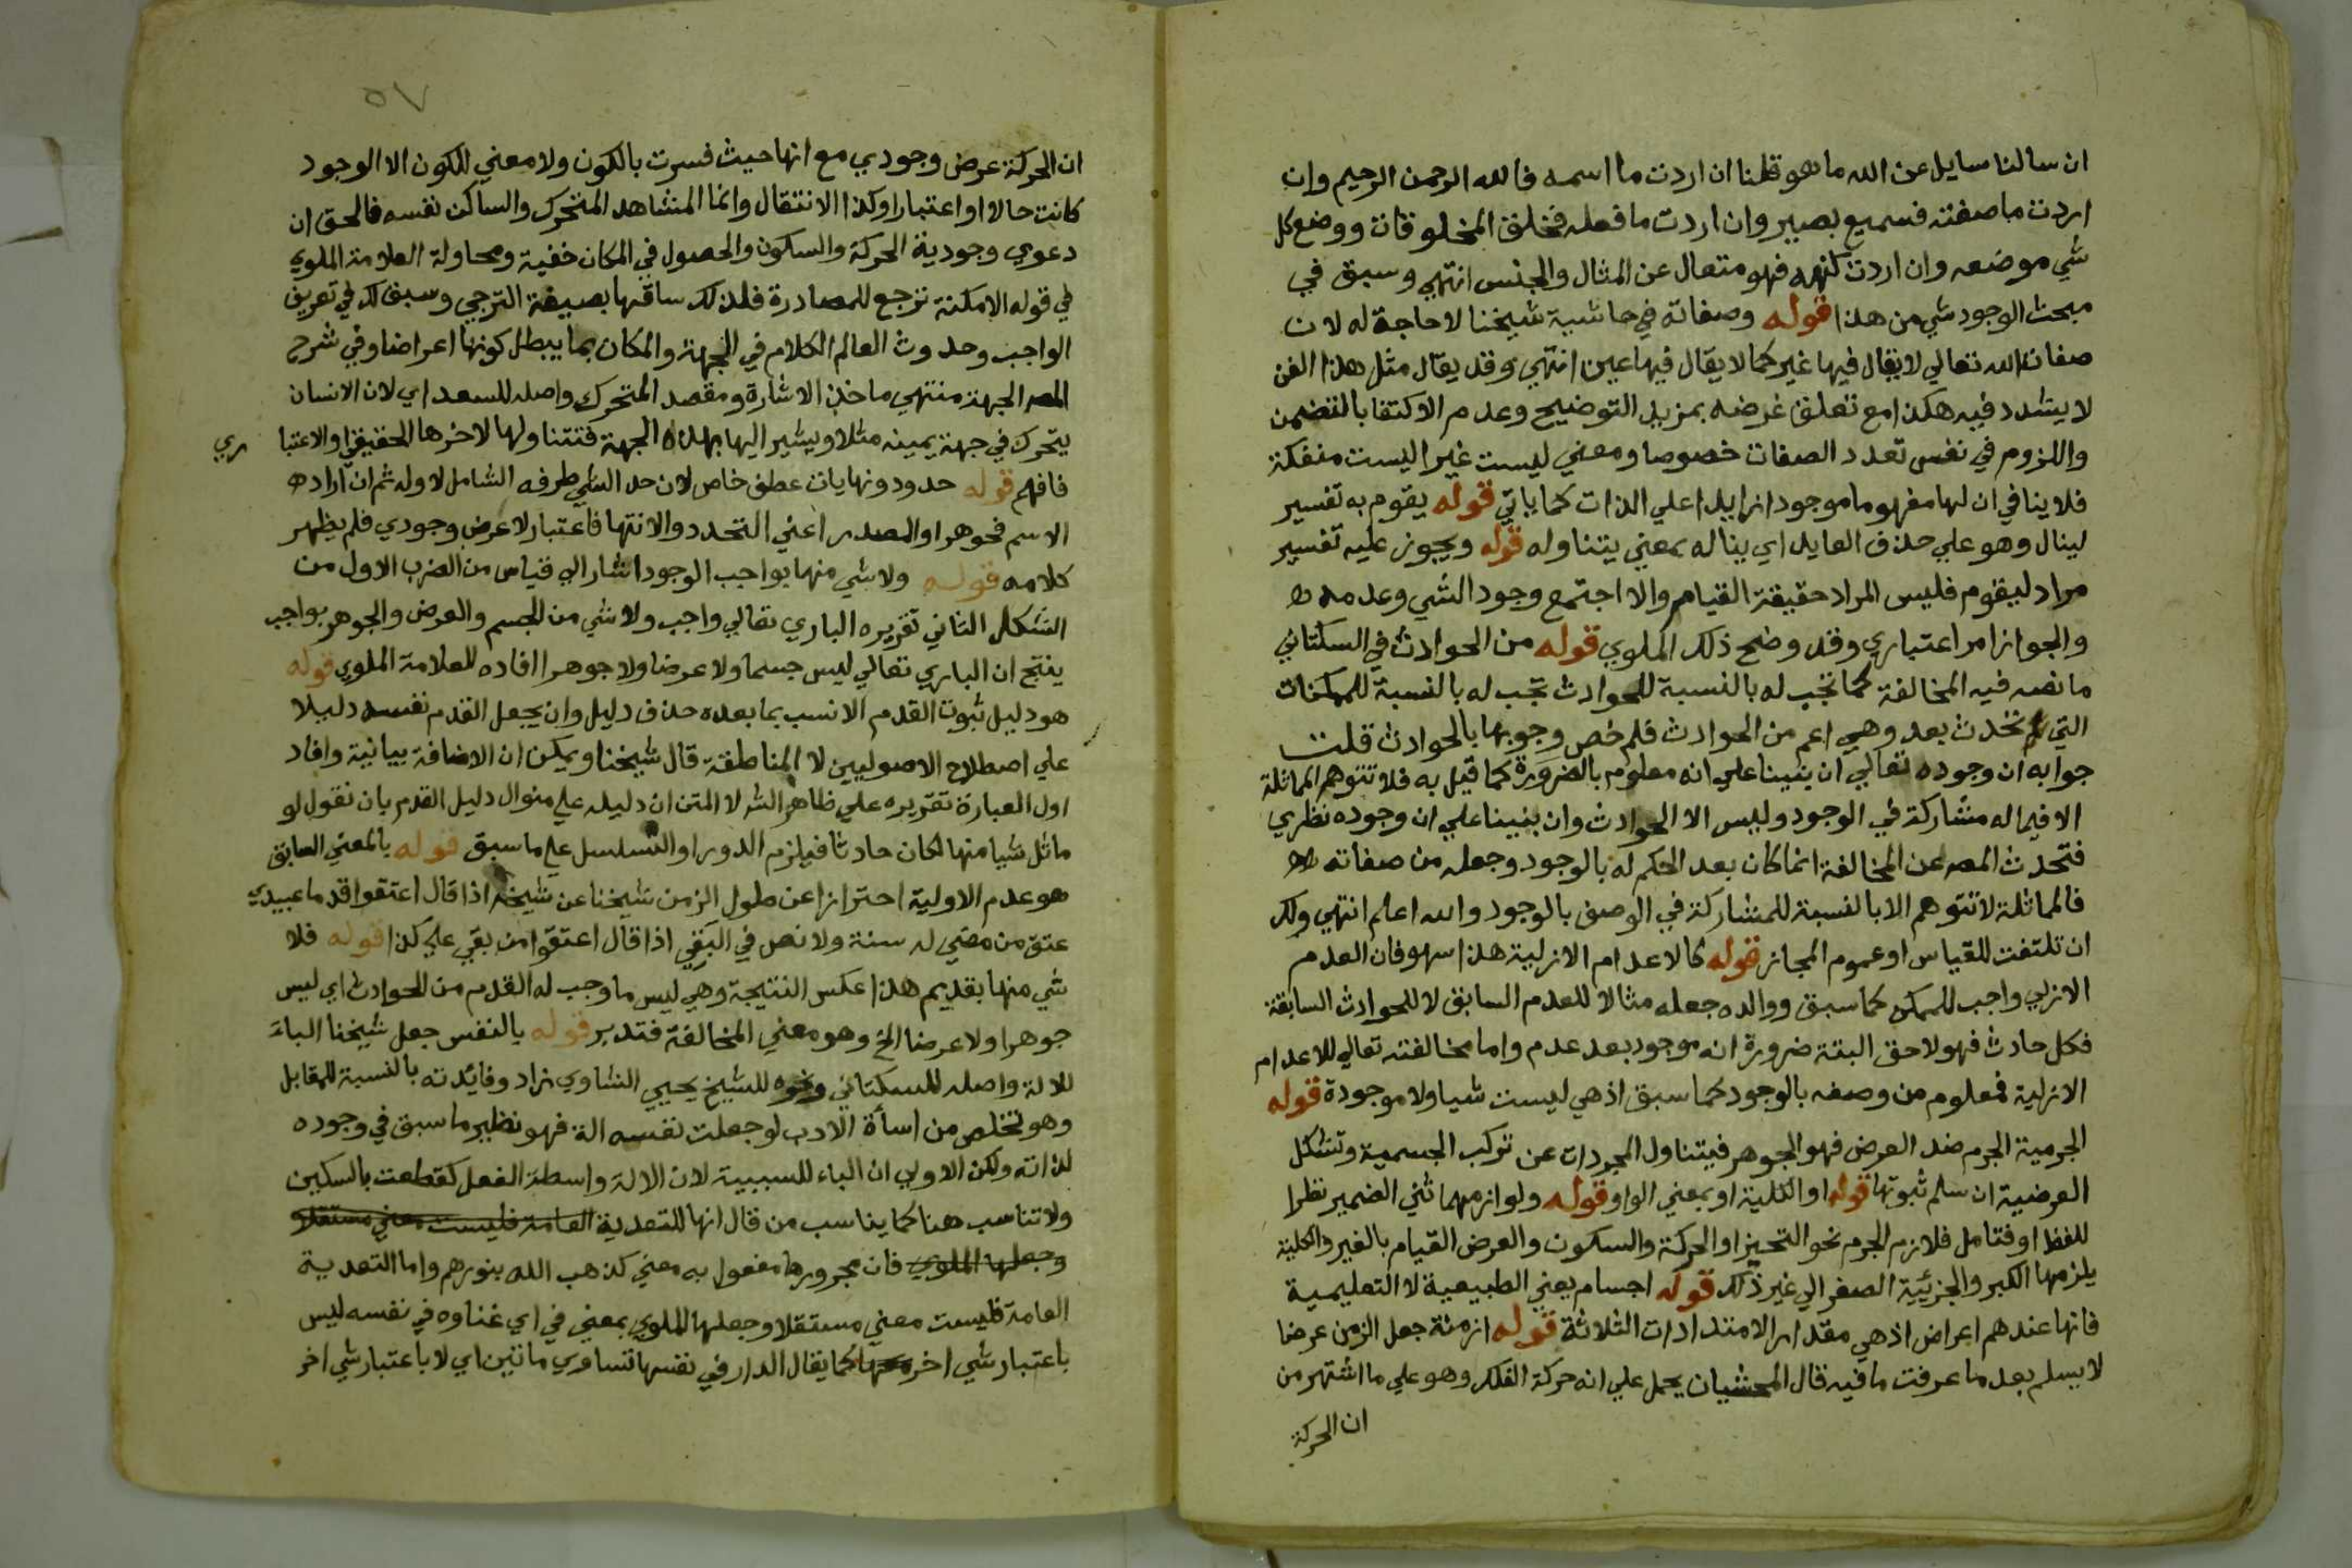 ان سالنا سايل عن الله ما هو قلنا ان اردت ما اسمه فالله الرحمن الرحيم وان
اردت ما صفته فسميع بصير وان اردت ما فعله فخلق المخلوقات ووضع كل
شي موضعه وان اردت كنهه فهو متعال عن المثال والجنس انتهي وسبق في
مبحث الوجود شي من هذا قوله وصفاته في حاشية شيخنا لا حاجة له لان
صفات الله تعالي لا يقال فيها غير كما لا يقال فيها عين انتهي وقد يقال مثل هذا الفن
لا يشدد فيه هكذا مع تعلق غرضه بمزيد التوضيح وعدم الاكتفا بالتضمن
واللزوم في نفس تعدد الصفات خصوصا ومعني ليست غيرا ليست منفكة
فلا ينافي ان لها مفهوما موجودا زايدا علي الذات كما ياتي قوله يقوم به تفسير
لينال وهو علي حذف العايد اي يناله بمعني يتناوله قوله ويجوز عليه تفسير
مراد ليقوم فليس المراد حقيقة القيام والا اجتمع وجود الشي وعدمه
والجواز امر اعتباري وقد وضح ذلك الملوي قوله من الحوادث في السكتاني
ما نصه فيه المخالفة كما تجب له بالنسبة للحوادث تجب له بالنسبة للممكنات
التي لم تحدث بعد وهي اعم من الحوادث فلم خص وجوبها بالحوادث قلت
جوابه ان وجوده تعالي ان بنينا علي انه معلوم بالضرورة كما قيل به فلا تتوهم المماثلة
الا فيما له مشاركة في الوجود وليس الا الحوادث وان بنينا علي ان وجوده نظري
فتحدث المصه عن المخالفة انما كان بعد الحكم له بالوجود وجعله من صفاته
فالمماثلة لا تتوهم الا بالنسبة للمشاركة في الوصف بالوجود والله اعلم انتهي ولك
ان تلتفت للقياس او عموم المجاز قوله كالاعدام الازلية هذا سهو فان العدم
الازلي واجب للممكن كما سبق ووالده جعله مثالا للعدم السابق لا للحوادث السابقة
فكل حادث فهو لاحق البتة ضرورة انه موجود بعد عدم واما مخالفته تعالي للاعدام
الازلية فمعلوم من وصفه بالوجود كما سبق اذ هي ليست شيا ولا موجودة قوله
الجرمية الجرم ضد العرض فهو الجوهر فيتناول المجردات عن تركب الجسمية وتشكل
العرضية ان سلم ثبوتها قوله او الكلية او بمعني الواو قوله ولوازمهما ثني الضمير نظرا
للفظ او فتامل فلازم الجرم نحو التحيز او الحركة والسكون والعرض القيام بالغير والكلية
يلزمها الكبر والجزئية الصغر الي غير ذلك قوله اجسام يعني الطبيعية لا التعليمية
فانها عندهم اعراض اذ هي مقدار الامتدادات الثلاثة قوله ازمنة جعل الزمن عرضا
لا يسلم بعد ما عرفت ما فيه قال المحشيان يحمل علي انه حركة الفلك وهو علي ما اشتهر من
ان الحركة
٥٧
ان الحركة عرض وجودي مع انها حيث فسرت بالكون ولا معني للكون الا الوجود
كانت حالا او اعتبارا وكذا الانتقال وانما المشاهد المتحرك والساكن نفسه فالحق ان
دعوي وجودية الحركة والسكون والحصول في المكان خفية ومحاولة العلامة الملوي
في قوله الامكنة ترجع للمصادرة فلذلك ساقها بصيغة الترجي وسبق لك في تعريف
الواجب وحدوث العالم الكلام في الجهة والمكان بما يبطل كونها اعراضا وفي شرح
المصه الجهة منتهي ماخذ الاشارة ومقصد المتحرك واصله للسعد اي لان الانسان
يتحرك في جهة يمينه مثلا ويشير اليها بهذه الجهة فتتناولها لاخرها الحقيقي او الاعتبا
ري
فافهم قوله حدود ونهايات عطف خاص لان حد الشي طرفه الشامل لاوله ثم ان اراده
الاسم فجوهر او المصدر اعني التحدد والانتها فاعتبار لا عرض وجودي فلم يظهر
كلامه قوله ولا شي منها بواجب الوجود اشار الي قياس من الضرب الاول من
الشكل الثاني تقريره الباري تعالي واجب ولا شي من الجسم والعرض والجوهر بواجب
ينتج ان الباري تعالي ليس جسما ولا عرضا ولا جوهرا افاده للعلامة الملوي قوله
هو دليل ثبوت القدم الانسب بما بعده حذف دليل وان يجعل القدم نفسه دليلا
علي اصطلاح الاصوليين لا المناطقة قال شيخنا ويمكن ان الاضافة بيانية وافاد
اول العبارة تقريره علي ظاهر الشر لا المتن ان دليله علي منوال دليل القدم بان نقول لو
ماثل شيا منها لكان حادثا فيلزم الدور او التسلسل علي ما سبق قوله بالمعني السابق
هو عدم الاولية احترازا عن طول الزمن شيخنا عن شيخه اذا قال اعتقوا قدما عبيدي
عتق من مضي له سنة ولا نص في البقي اذا قال اعتقوا من بقي علي كذا قوله فلا
شي منها بقديم هذا عكس النتيجة وهي ليس ما وجب له القدم من الحوادث اي ليس
جوهرا ولا عرضا الخ وهو معني المخالفة فتدبر قوله بالنفس جعل شيخنا الباء
للالة واصله للسكتاني ونحوه للشيخ يحيي الشاوي زاد وفائدته بالنسبة للمقابل
وهو تخلص من اساة الادب لو جعلت نفسه الة فهو نظير ما سبق في وجوده
لذاته ولكن الاولي ان الباء للسببية لان الالة واسطة الفعل كقطعت بالسكين
ولا تناسب هنا كما يناسب من قال انها للتعدية العامة فليست معني مستقلا
وجعلها الملوي فان مجرورها مفعول به معني كذهب الله بنورهم واما التعدية
العامة فليست معني مستقلا وجعلها الملوي بمعني في اي غناوه في نفسه ليس
باعتبار شي اخر كما يقال الدار في نفسها تساوي ماتين اي لا باعتبار شي اخر